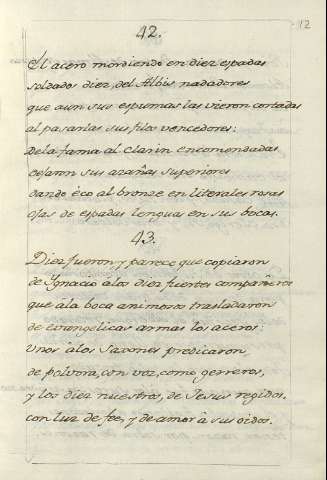 12
42.
El acero mordiendo en diez espadas
soldados diez, del Albis nadadores
que aun sus espumas las vieron cortadas
al pasarlas sus filos vencedores:
Dela fama al Clarin encomendadas
dejaron sus azañas superiores
dando éco al bronze en literales rosas
ojas de espadas lenguas en sus bocas.
43.
Diez fueron, y parece que copiaron
de Ygnacio alos diez fuertes compañeros
que àla boca animosso trasladaron
de evangelicas armas los aceros:
Unos àlos Saxones predicaron,
de polvora, con voz, como gerreros,
y los diez nuestros, de Jesus regidos.
con luz de fee, y de amor à sus oidos.